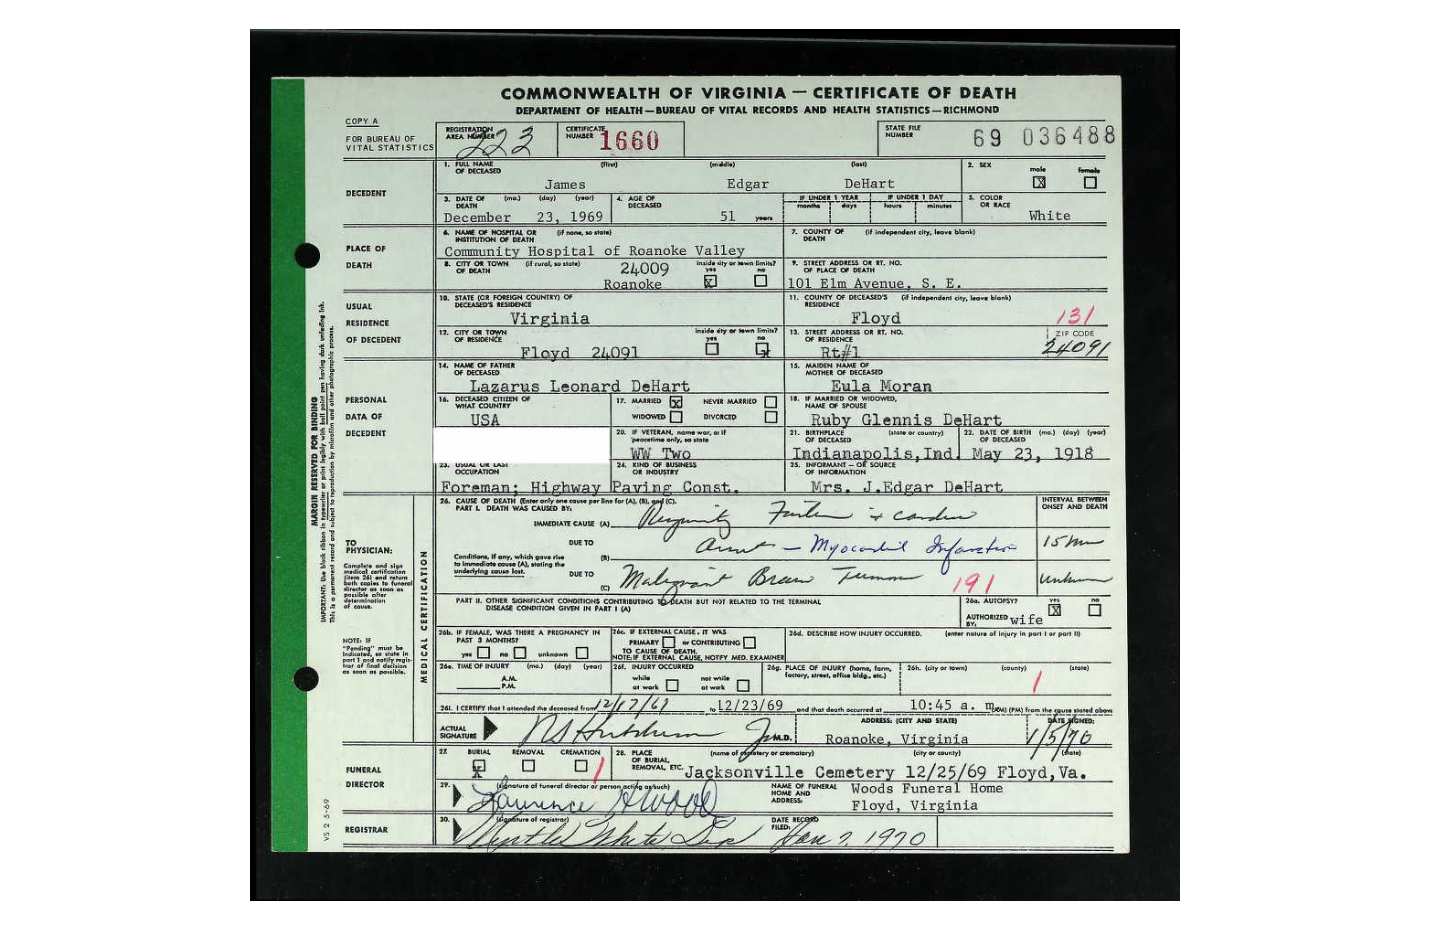 COMMONWEALTH OF VIRGINIA — CERTIFICATE OF DEATH
DEPARTMENT OF HEALTH—BUREAU OF VITAL RECORDS AND HEALTH STATISTICS—RICHMOND
COPY A
FOR BUREAU OF
VITAL STATISTICS
REGISTRATION
AREA NUMBER 223
CERTIFICATE
NUMBER 1660
STATE FILE
NUMBER 69 036488
DECEDENT
1. FULL NAME (first) (middle) (last)
OF DECEASED
James Edgar DeHart
2. SEX male female
X
3. DATE OF (mo.) (day) (year)
DEATH
December 23, 1969
4. AGE OF
DECEASED
51 years
IF UNDER 1 YEAR IF UNDER 1 DAY
months days hours minutes
5. COLOR
OR RACE
White
PLACE OF
DEATH
6. NAME OF HOSPITAL OR (if none, so state)
INSTITUTION OF DEATH
Community Hospital of Roanoke Valley
7. COUNTY OF (if independent city, leave blank)
DEATH
8. CITY OR TOWN (if rural, so state) inside city or town limits?
OF DEATH yes no
24009
Roanoke X
9. STREET ADDRESS OR RT. NO.
OF PLACE OF DEATH
101 Elm Avenue, S. E.
USUAL
RESIDENCE
OF DECEDENT
10. STATE (OR FOREIGN COUNTRY) OF
DECEASED'S RESIDENCE
Virginia
11. COUNTY OF DECEASED'S (if independent city, leave blank)
RESIDENCE
Floyd 131
12. CITY OR TOWN inside city or town limits?
OF RESIDENCE yes no
Floyd 24091 x
13. STREET ADDRESS OR RT. NO.
OF RESIDENCE
Rt#1
ZIP CODE
24091
PERSONAL
DATA OF
DECEDENT
14. NAME OF FATHER
OF DECEASED
Lazarus Leonard DeHart
15. MAIDEN NAME OF
MOTHER OF DECEASED
Eula Moran
16. DECEASED CITIZEN OF
WHAT COUNTRY
USA
17. MARRIED X NEVER MARRIED
WIDOWED DIVORCED
18. IF MARRIED OR WIDOWED,
NAME OF SPOUSE
Ruby Glennis DeHart
20. IF VETERAN, name war, or if
peacetime only, so state
WW Two
21. BIRTHPLACE (state or country)
OF DECEASED
Indianapolis,Ind.
22. DATE OF BIRTH (mo.) (day) (year)
OF DECEASED
May 23, 1918
23. USUAL OR LAST
OCCUPATION
Foreman; Highway
24. KIND OF BUSINESS
OR INDUSTRY
Paving Const.
25. INFORMANT — OR SOURCE
OF INFORMATION
Mrs. J.Edgar DeHart
MEDICAL CERTIFICATION
TO
PHYSICIAN:
Complete and sign
medical certification
(item 26) and return
both copies to funeral
director as soon as
possible after
determination
of cause.
NOTE: IF
"Pending" must be
indicated, so state in
part I and notify regis-
trar of final decision
as soon as possible.
26. CAUSE OF DEATH (Enter only one cause per line for (A), (B), and (C).
PART I. DEATH WAS CAUSED BY:
INTERVAL BETWEEN
ONSET AND DEATH
IMMEDIATE CAUSE (A) Failure + cardiac
DUE TO
Conditions, if any, which gave rise
to immediate cause (A), stating the
underlying cause last.
(B) Arrest — Myocardial Infarction 15 Min
DUE TO
(C) Malignant Brain Tumor 191 unknown
PART II. OTHER SIGNIFICANT CONDITIONS CONTRIBUTING TO DEATH BUT NOT RELATED TO THE TERMINAL
DISEASE CONDITION GIVEN IN PART I (A)
26a. AUTOPSY? yes no
X
AUTHORIZED
BY: wife
26b. IF FEMALE, WAS THERE A PREGNANCY IN
PAST 3 MONTHS?
yes no unknown
26c. IF EXTERNAL CAUSE, IT WAS
PRIMARY or CONTRIBUTING
TO CAUSE OF DEATH.
NOTE: IF EXTERNAL CAUSE, NOTIFY MED. EXAMINER
26d. DESCRIBE HOW INJURY OCCURRED. (enter nature of injury in part I or part II)
26e. TIME OF INJURY (mo.) (day) (year)
A.M.
P.M.
26f. INJURY OCCURRED
while not while
at work at work
26g. PLACE OF INJURY (home, farm,
factory, street, office bldg., etc.)
26h. (city or town) (county) (state)
26i. I CERTIFY that I attended the deceased from 12/17/69 to 12/23/69 and that death occurred at 10:45 a. m. (AM) (PM) from the cause stated above
ACTUAL
SIGNATURE Jr M.D.
ADDRESS: (CITY AND STATE)
Roanoke, Virginia
DATE SIGNED:
1/5/70
FUNERAL
DIRECTOR
27. BURIAL REMOVAL CREMATION
X
28. PLACE (name of cemetery or crematory) (city or county) (state)
OF BURIAL,
REMOVAL, ETC. Jacksonville Cemetery 12/25/69 Floyd,Va.
29. (signature of funeral director or person acting as such)
Laurence H Wood
NAME OF FUNERAL
HOME AND
ADDRESS:
Woods Funeral Home
Floyd, Virginia
REGISTRAR
30. (signature of registrar)
Myrtle White Dep
DATE RECORD
FILED: Jan 7, 1970
VS 2 5-69
MARGIN RESERVED FOR BINDING
IMPORTANT: Use black ribbon in typewriter or print legibly with ball point pen having dark unfading ink.
This is a permanent record and subject to reproduction by microfilm and other photographic process.